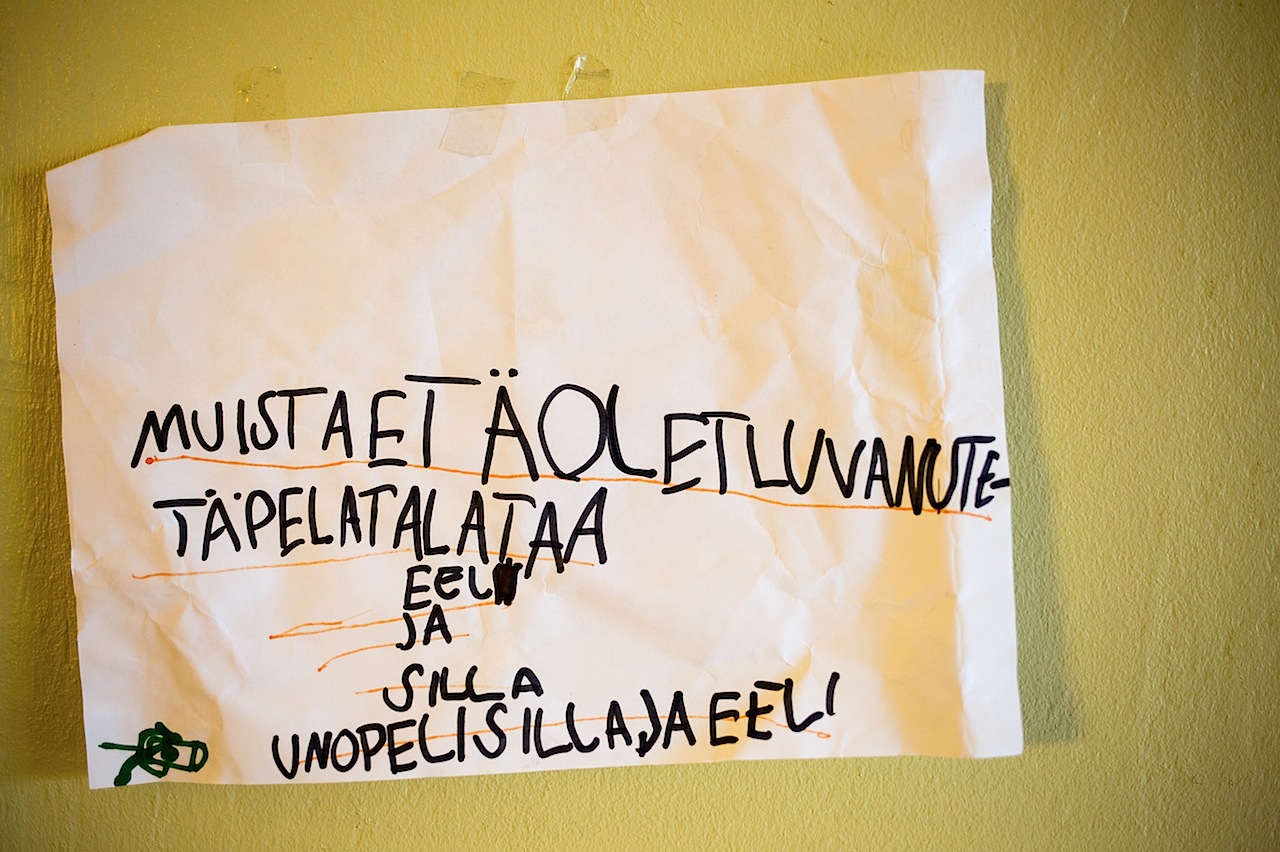 MUISTAETÄOLETLUVANUTE-
TÄPELATALATAA
EELI
JA
SILLA
UNOPELISILLAJAEELI